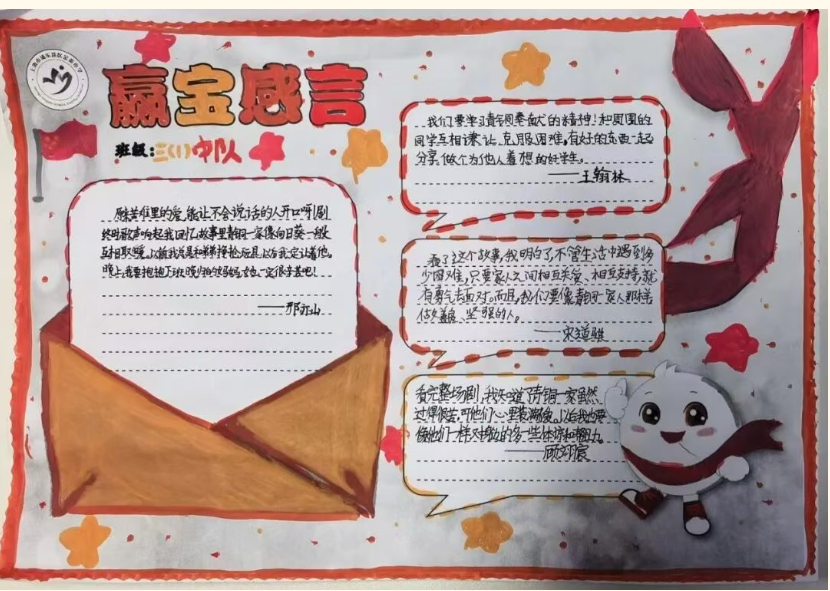 赢宝感言
班级：三(1)中队
原来苦难里的爱,能让不会说话的人开口呀!剧
终时歌声响起我回忆故事里青铜一家像向日葵一般
互相取暖。以前我总是和弟弟抢玩具,以后我定让着他。
晚上,我要抱抱下班晚归的妈妈,她一定很辛苦吧!
——邢亦山
我们要学习青铜葵花的精神!和周围的
同学互相谦让,克服困难,有好的东西一起
分享,做个为他人着想的好学生。
——王翰林
看了这个故事,我明白了不管生活中遇到多
少困难,只要家人之间相互关爱、相互支持,就
有勇气去面对。而且,我们要像青铜一家人那样
做善良、坚强的人。
——宋
看完整场剧,我知道了青铜一家虽然
过得很苦,可他们心里装满爱。以后我也要
像他们一样,对身边的多一些体谅和
——顾翊宸